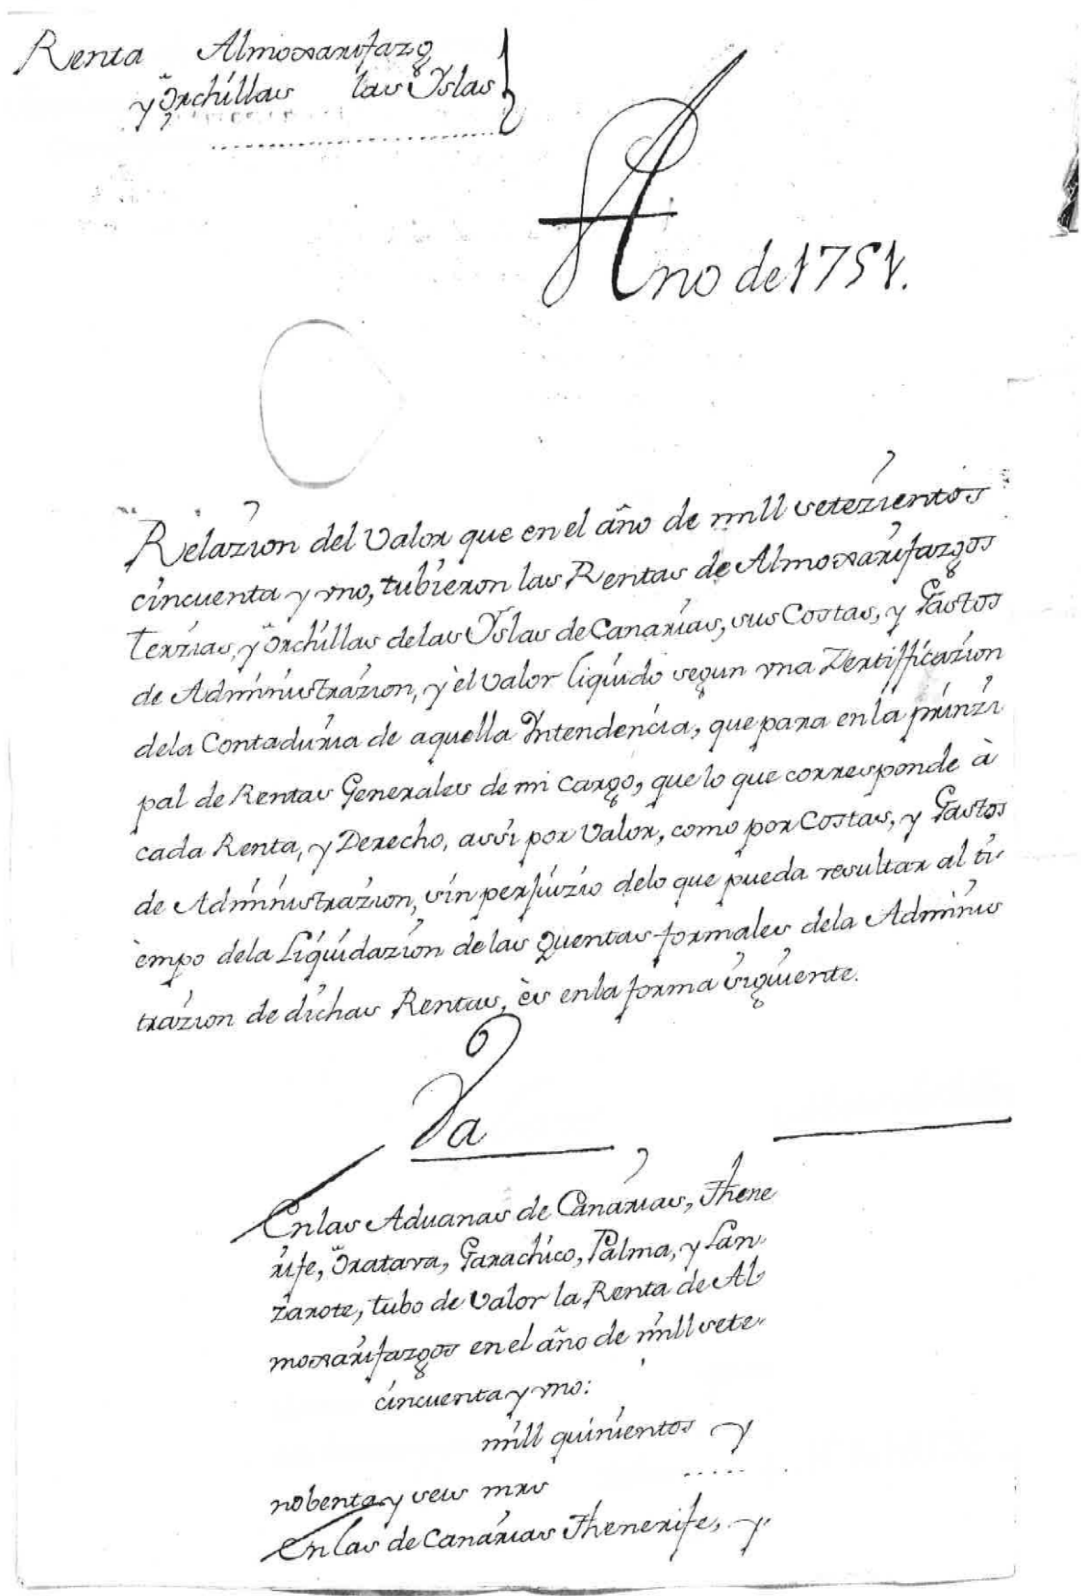 Renta Almoxarifazg
y Orchillas las Yslas
Año de 1751.
Relazion del Valor que en el año de mill setezientos
cincuenta y vno, tubieron las Rentas de Almoxarifazgos
Terzias, y Orchillas de las Yslas de Canarias, sus Costas, y Gastos
de Administrazion, y èl Valor liquido segun vna Zertifficazion
dela Contaduria de aquella Intendencia, que para en la prinzi
pal de Rentas Generales de mi cargo, que lo que corresponde à
cada Renta, y Derecho, assi por Valor, como por Costas, y Gastos
de Administrazion, sin perjuizio delo que pueda resultar al ti-
èmpo dela Liquidazion de las Quentas formales dela Adminis
trazion de dichas Rentas, ès en la forma siguiente.
Va
En las Aduanas de Canarias, Thene
rife, Oratava, Garachico, Palma, y Lan-
zarote, tubo de Valor la Renta de Al-
moxarifazgos en el año de mill sete-
cincuenta y vno:
mill quinientos y
nobenta y seis mrs
En las de Canarias Thenerife, y